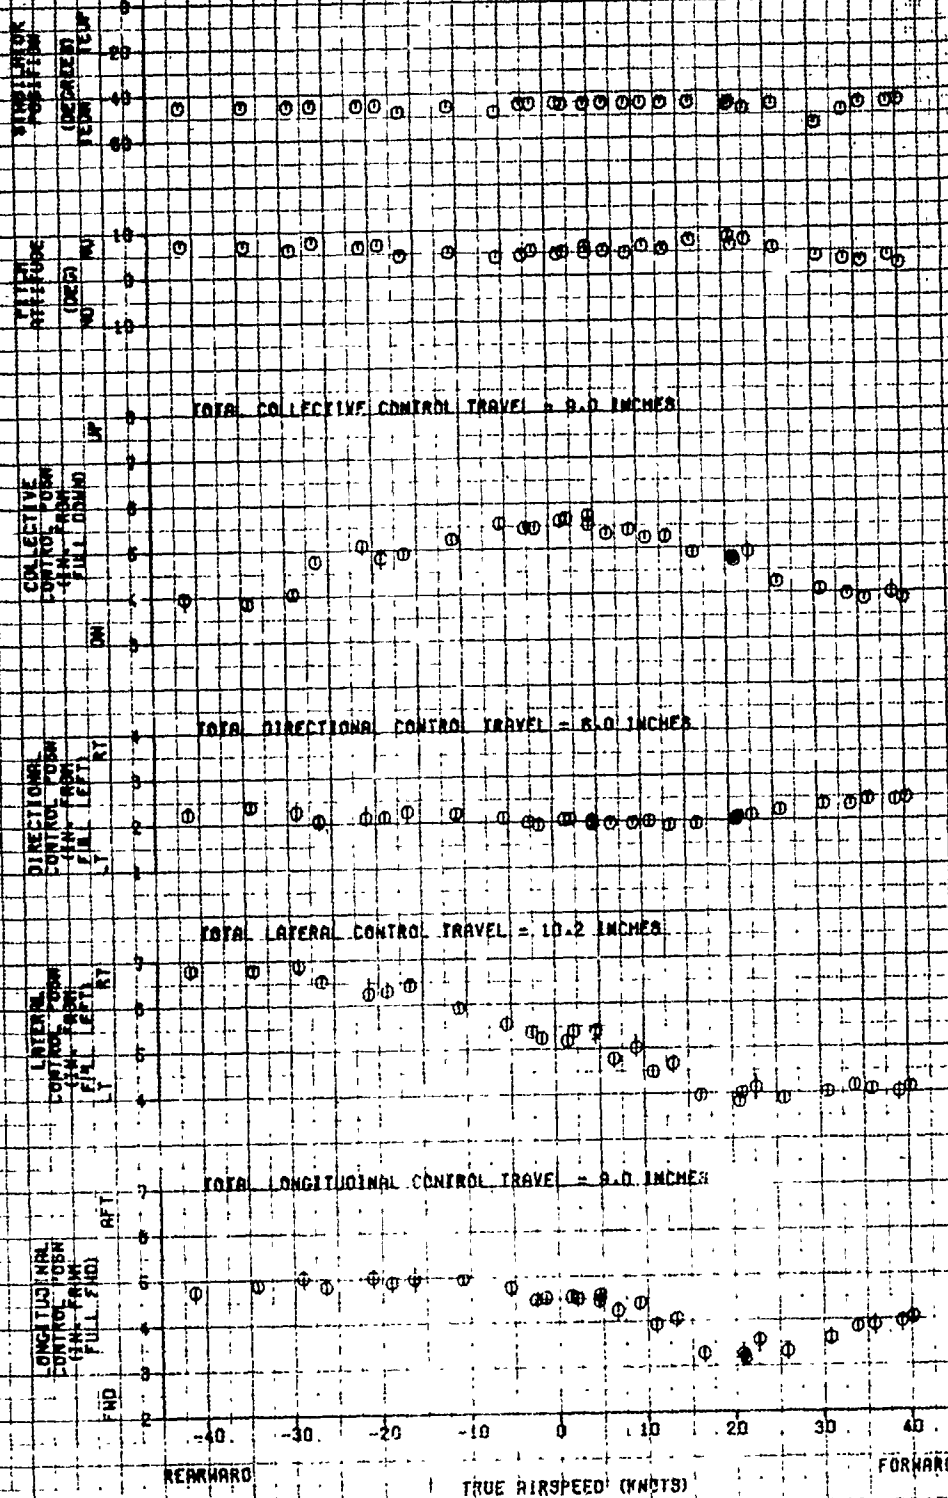 0
20
40
60
STABILATOR
POSITION
(DEGREES)
TEDN TEUP
10
0
10
PITCH
ATTITUDE
(DEG)
ND NU
TOTAL COLLECTIVE CONTROL TRAVEL = 9.0 INCHES
8
7
6
5
4
3
COLLECTIVE
CONTROL POSN
(IN. FROM
FULL DOWN)
DN UP
TOTAL DIRECTIONAL CONTROL TRAVEL = 6.0 INCHES
4
3
2
1
DIRECTIONAL
CONTROL POSN
(IN. FROM
FULL LEFT)
LT RT
TOTAL LATERAL CONTROL TRAVEL = 10.2 INCHES
7
6
5
4
LATERAL
CONTROL POSN
(IN. FROM
FULL LEFT)
LT RT
TOTAL LONGITUDINAL CONTROL TRAVEL = 9.0 INCHES
7
6
5
4
3
2
LONGITUDINAL
CONTROL POSN
(IN. FROM
FULL FWD)
FWD AFT
-40. -30. -20 -10 0 10 20 30 40
REARWARD FORWARD
TRUE AIRSPEED (KNOTS)